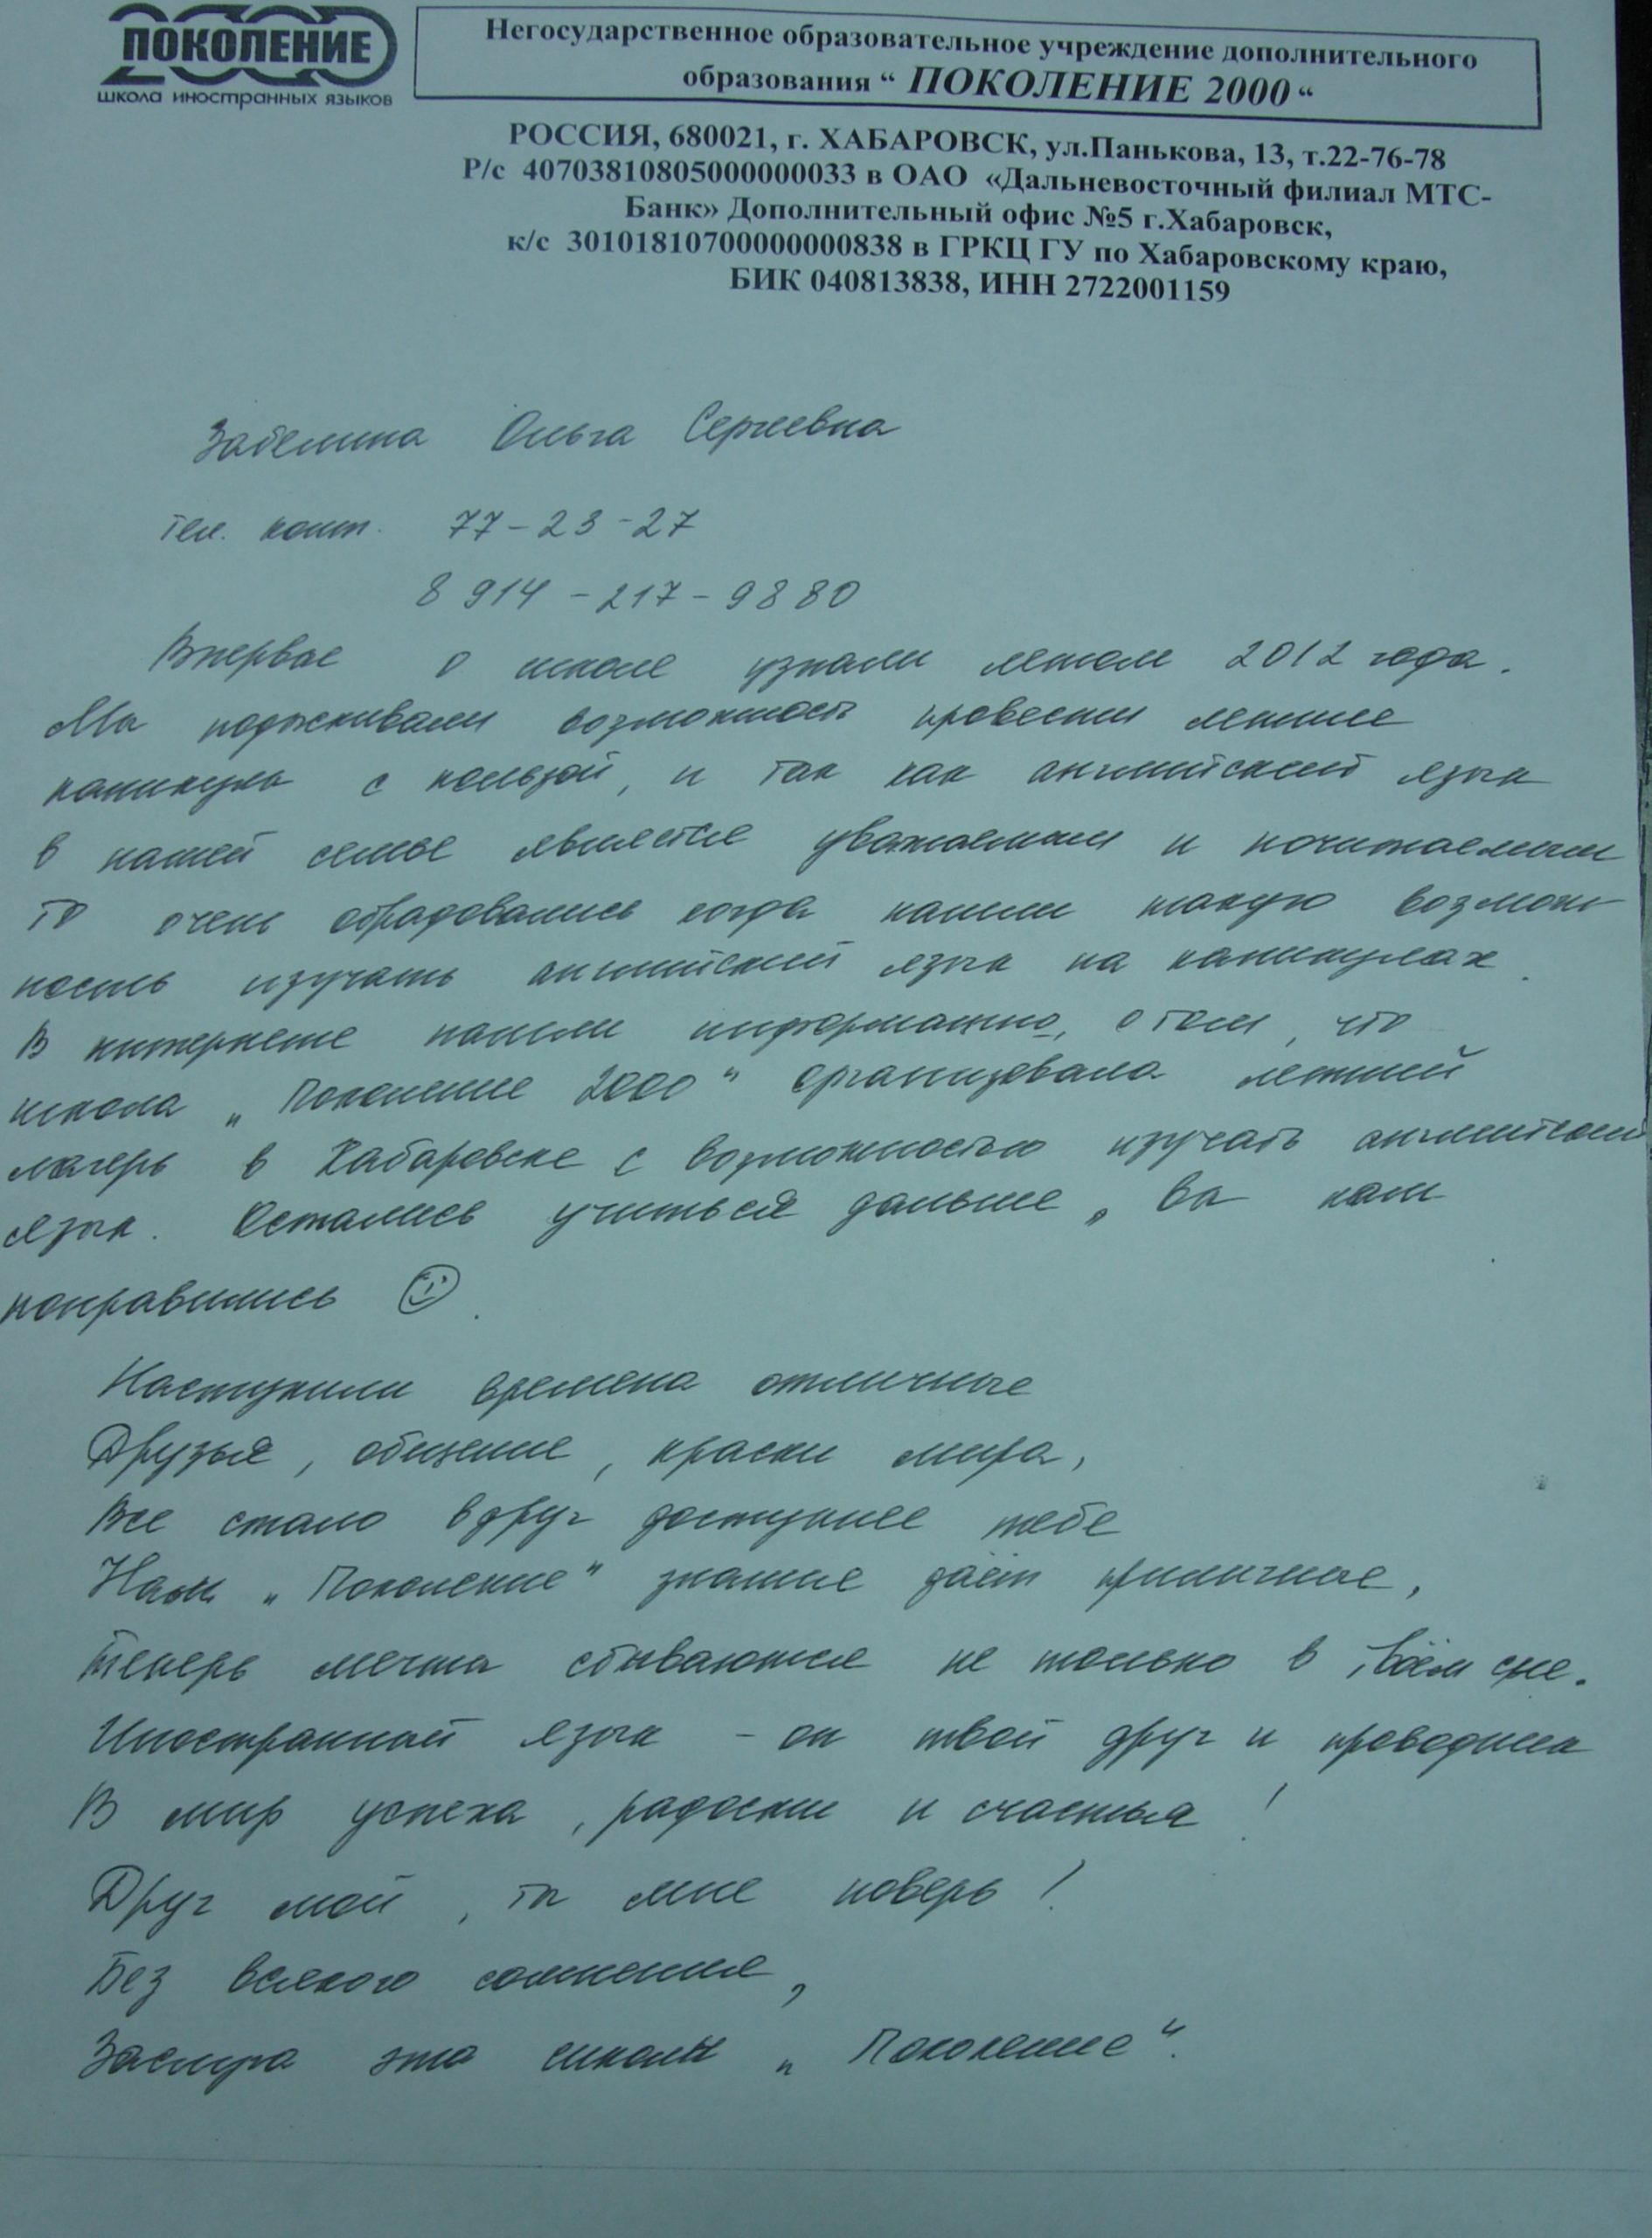 ПОКОЛЕНИЕ
2000
школа иностранных языков
Негосударственное образовательное учреждение дополнительного
образования “ ПОКОЛЕНИЕ 2000 “
РОССИЯ, 680021, г. ХАБАРОВСК, ул.Панькова, 13, т.22-76-78
Р/с 40703810805000000033 в ОАО «Дальневосточный филиал МТС-
Банк» Дополнительный офис №5 г.Хабаровск,
к/с 30101810700000000838 в ГРКЦ ГУ по Хабаровскому краю,
БИК 040813838, ИНН 2722001159
Забелина Ольга Сергеевна
тел. конт. 77-23-27
8 914-217-9880
Впервые о школе узнали летом 2012 года.
Мы подыскивали возможность провести летние
каникулы с пользой, и так как английский язык
в нашей семье является уважаемым и почитаемым
то очень обрадовались когда нашли такую возмож-
ность изучать английский язык на каникулах.
В интернете нашли информацию, о том, что
школа „Поколение 2000" организовала летний
лагерь в Хабаровске с возможностью изучать английский
язык. Остались учиться дальше, вы нам
понравились ☺.
Наступили времена отличные
Друзья, общение, краски мира,
Все стало вдруг доступнее тебе
Нам „Поколение" знание даёт приличное,
Теперь мечта сбываются не только в твоём сне.
Иностранный язык - он твой друг и проводник
В мир успеха, радости и счастья!
Друг мой, ты мне поверь!
Без всякого сомнения,
Заслуга это школы „Поколение".